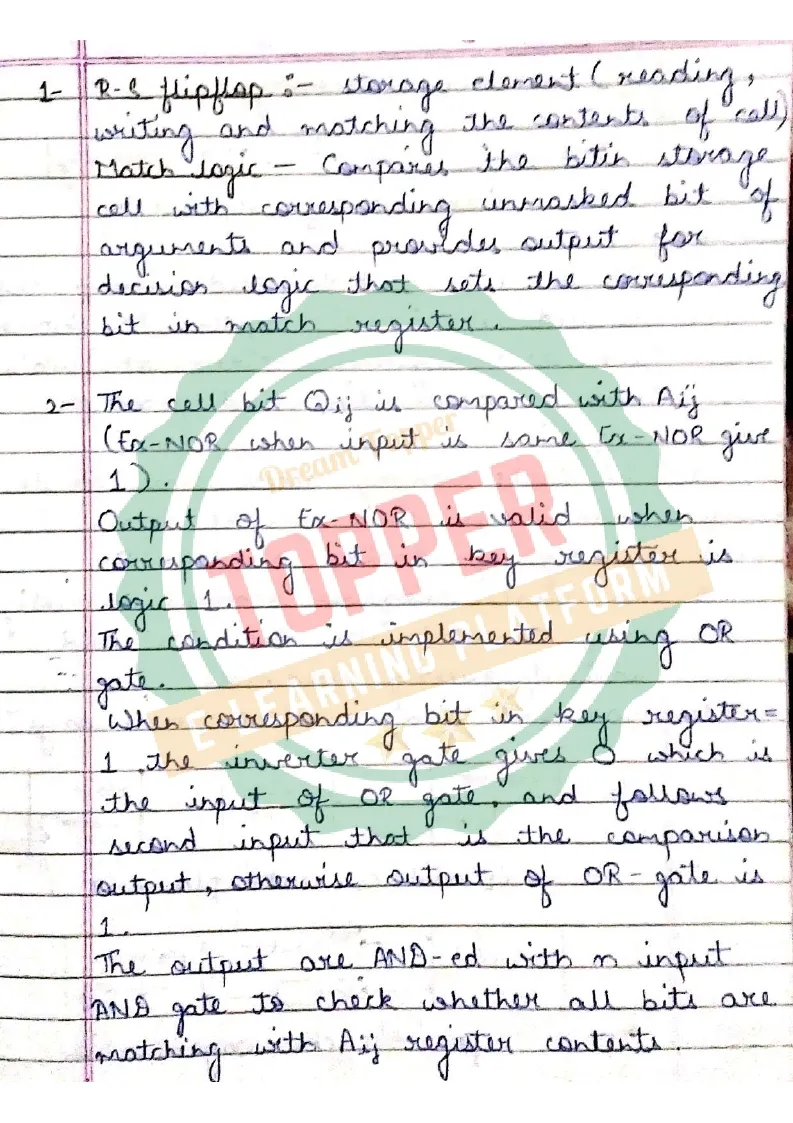 1- R-S flipflop :- storage element (reading,
writing and matching the contents of cell)
Match logic - Compares the bit in storage
cell with corresponding unmasked bit of
arguments and provides output for
decision logic that sets the corresponding
bit in match register.
2- The cell bit Qij is compared with Aij
(Ex-NOR when input is same Ex-NOR give
1).
Output of Ex-NOR is valid when
corresponding bit in key register is
logic 1.
The condition is implemented using OR
gate.
When corresponding bit in key register =
1 the inverter gate gives 0 which is
the input of OR gate, and follows
second input that is the comparison
output, otherwise output of OR-gate is
1.
The output are AND-ed with n input
AND gate to check whether all bits are
matching with Aij register contents.
Dream Topper
TOPPER
E-LEARNING PLATFORM